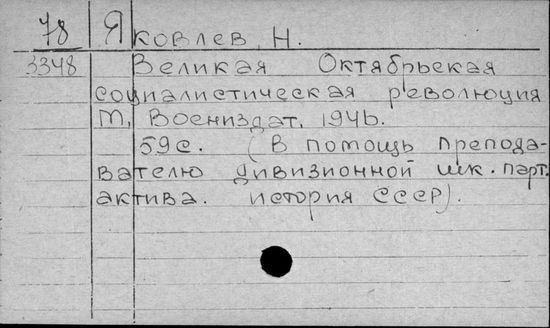 78 Яковлев, Н.
3348 Великая Октябрьская
социалистическая революция
М, Воениздат, 1946.
59 с. (В помощь препода-
вателю дивизионной шк. парт.
актива. история СССР).